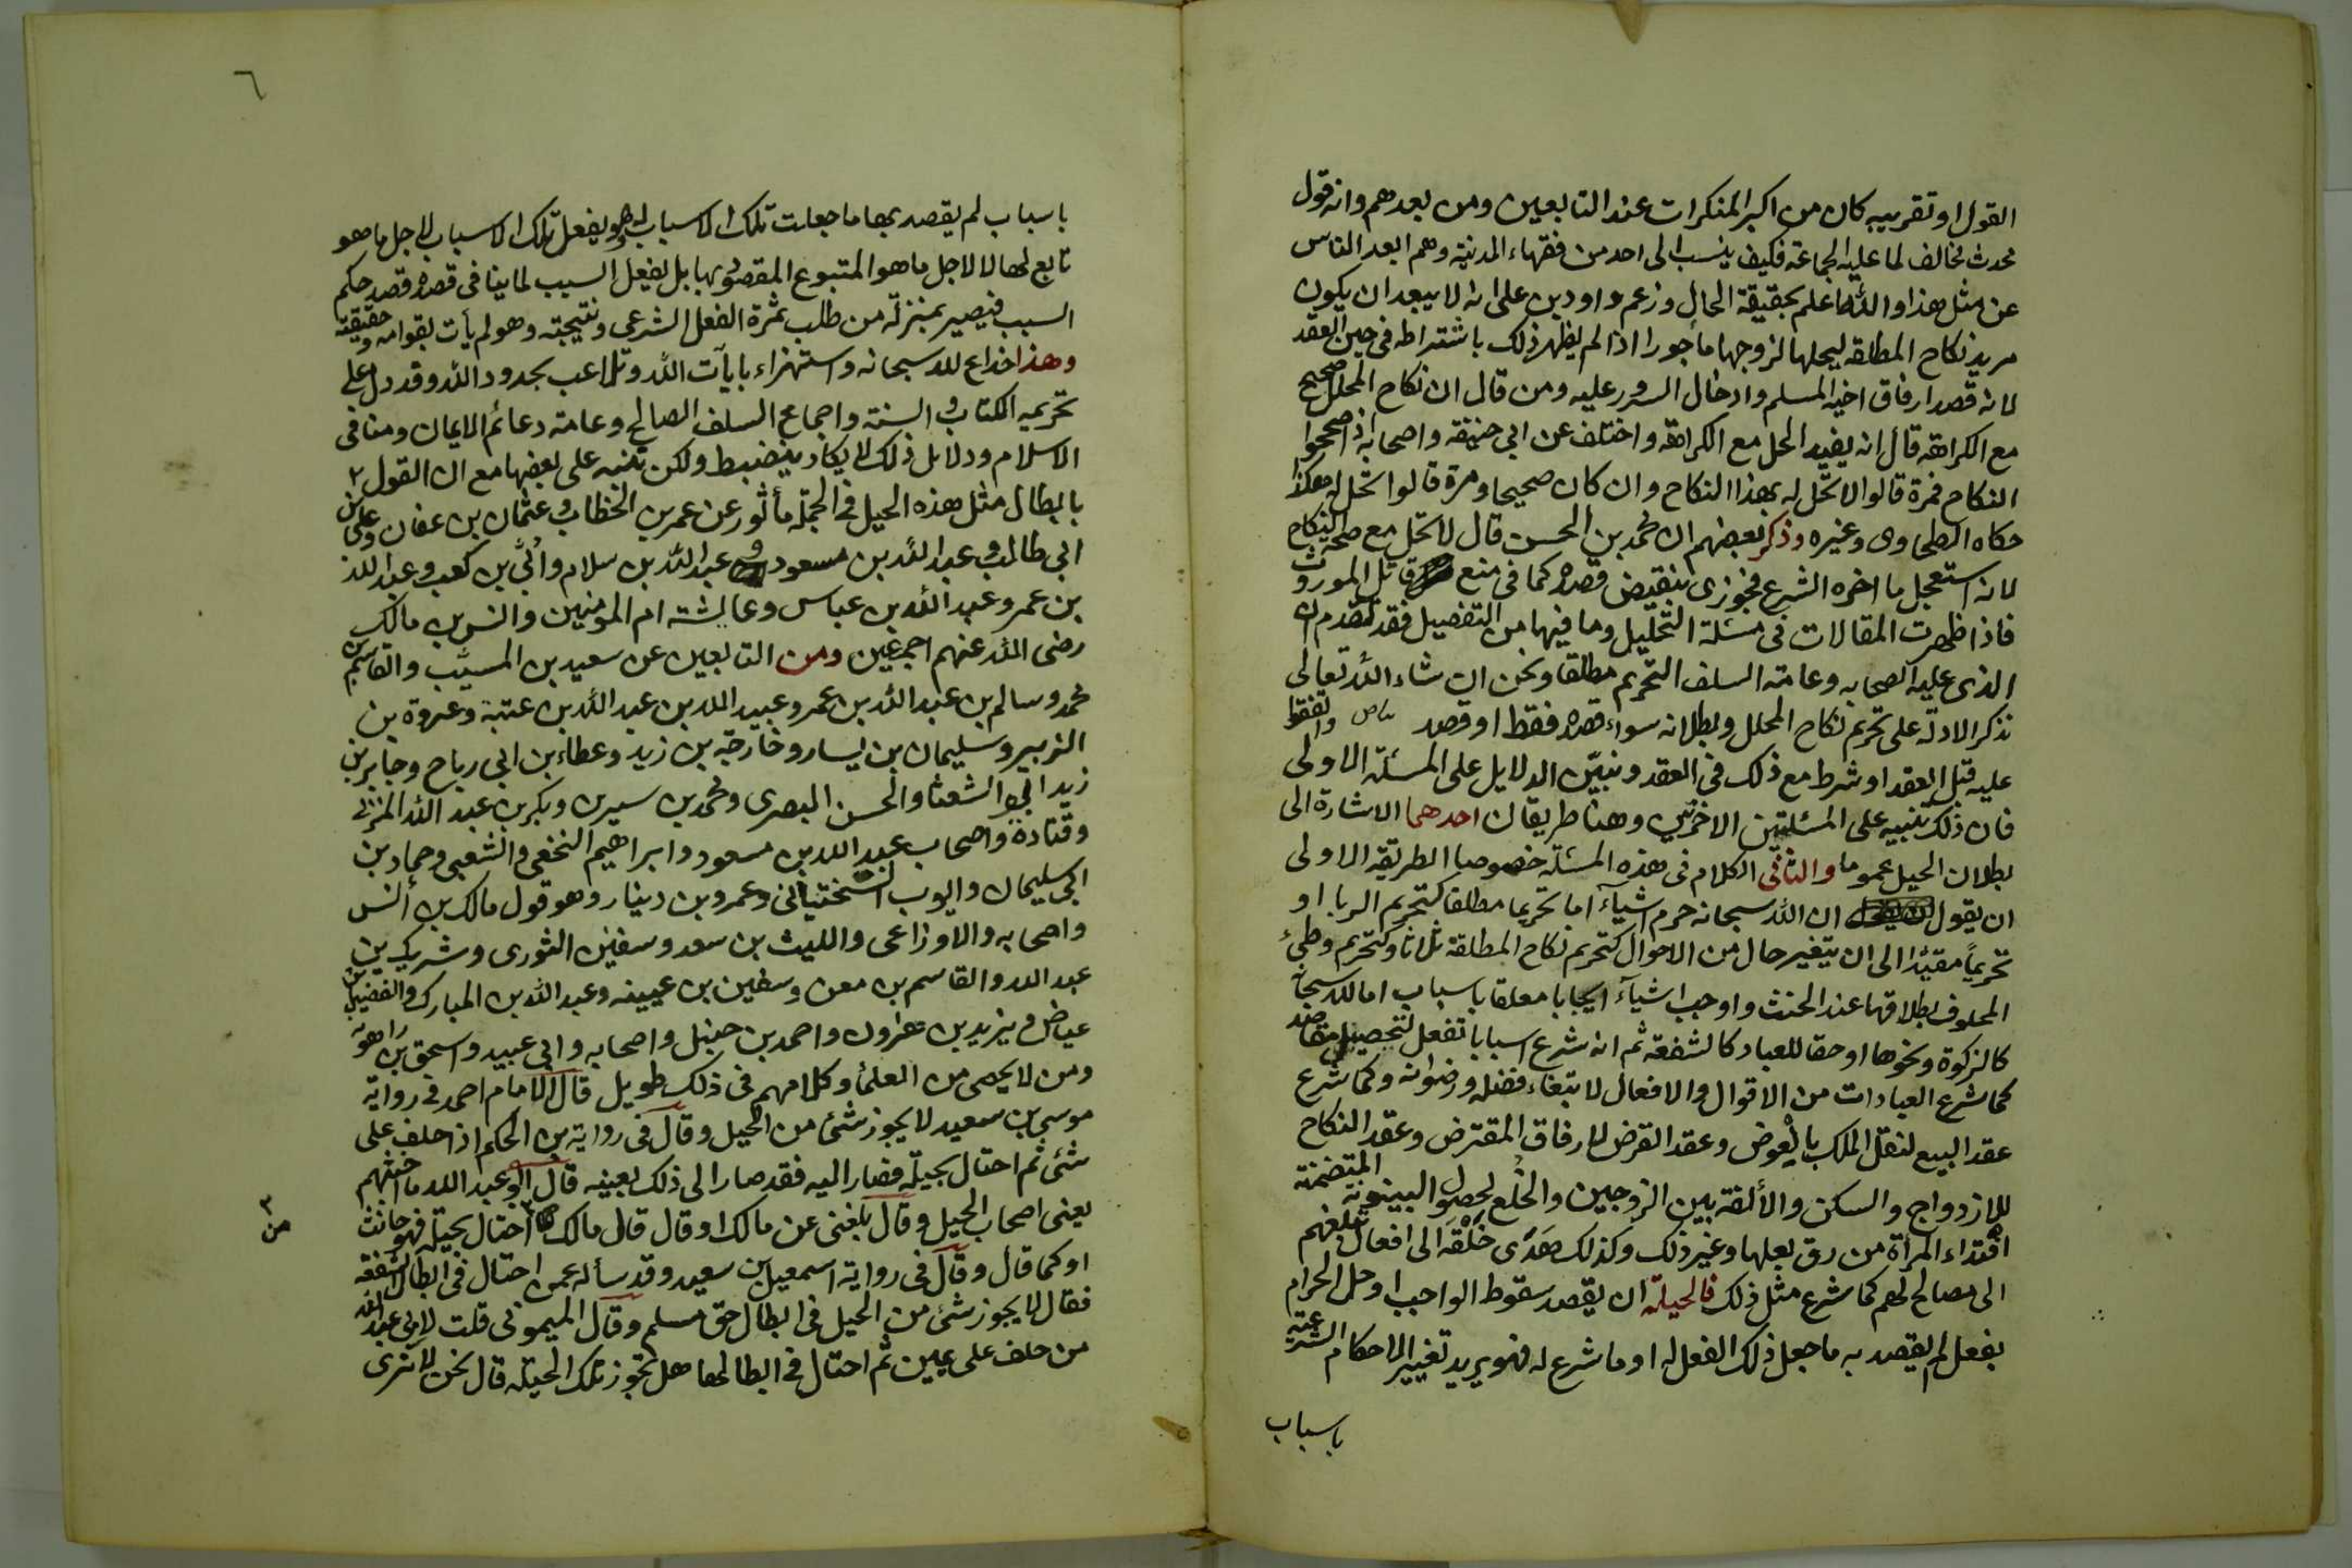 القول او تقريبه كان من اكبر المنكرات عند التابعين ومن بعدهم وانه قول
محدث مخالف لما عليه الجماعة فكيف ينسب الى احد من فقهاء المدينة وهم ابعد الناس
عن مثل هذا والله اعلم بحقيقة الحال وزعم داود بن على انه لا يبعد ان يكون
مريد نكاح المطلقه ليحلها لزوجها مأجورا اذا لم يظهر ذلك باشتراطه فى حين العقد
لانه قصد ارفاق اخيه المسلم وادخال السرور عليه ومن قال ان نكاح المحلل صحيح
مع الكراهة قال انه يفيد الحل مع الكراهة واختلف عن ابى حنيفه واصحابه اذا صححوا
النكاح فمرة قالوا لا تحل له بهذا النكاح وان كان صحيحا ومرة قالوا تحل له هكذا
حكاه الطحاوى وغيره وذكر بعضهم ان محمد بن الحسن قال لا تحل مع صحة النكاح
لانه استعجل ما اخره الشرع فجوزى بنقيض قصده كما فى منع قاتل الموروث
فاذا ظهرت المقالات فى مسئلة التحليل وما فيها من التفصيل فقد تقدم ان
الذى عليه الصحابه وعامته السلف التحريم مطلقا ونحن ان شاء الله تعالى
نذكر الادلة على تحريم نكاح المحلل وبطلانه سواء قصده فقط او قصد واتفقوا
عليه قبل العقد او شرط مع ذلك فى العقد ونبيّن الدلايل على المسئلة الاولى
فان ذلك تنبيه على المسئلتين الاخرتين وهنا طريقان احدهما الاشارة الى
بطلان الحيل عموما والثانى الكلام فى هذه المسئلة خصوصا الطريقه الاولى
ان يقول ان الله سبحانه حرم اشيآء اما تحريما مطلقا كتحريم الربا او
تحريماً مقيدًا الى ان يتغير حال من الاحوال كتحريم نكاح المطلقة ثلاثا وكتحريم وطئ
المحلوف بطلاقها عند الحنث واوجب اشيآء ايجابا معلقا باسباب اما لله سبحانه
كالزكوة ونحوها او حقا للعباد كالشفعة ثم انه شرع اسبابا تفعل لتحصيل مقاصد
كما شرع العبادات من الاقوال والافعال لابتغاء فضله ورضوانه وكما شرع
عقد البيع لنقل الملك بالعوض وعقد القرض لارفاق المقترض وعقد النكاح
للازدواج والسكن والألفة بين الزوجين والخُلع لحصول البينونة المتضمنة
افتداء المرأة من رق بعلها وغير ذلك وكذلك هَدَى خَلْقَه الى افعال تبلغهم
الى مصالح لهم كما شرع مثل ذلك فالحيلة ان يقصد سقوط الواجب او حل الحرام
بفعل لم يقصد به ما جعل ذلك الفعل له او ما شرع له فهو يريد تغيير الاحكام الشرعية
باسباب
٦
باسباب لم يقصد بها ما جعلت تلك الاسباب له وهو يفعل تلك الاسباب لاجل ما هو
تابع لها لا لاجل ما هو المتبوع المقصود بها بل يفعل السبب لما ينافى قصده قصد حكم
السبب فيصير بمنزلة من طلب ثمرة الفعل الشرعى ونتيجته وهو لم يأت بقوامه وحقيقته
وهذا خداع لله سبحانه واستهزاء بايآت الله وتلاعب بحدود الله وقد دل على
تحريمه الكتاب والسنة واجماع السلف الصالح وعامة دعائم الايمان ومبانى
الاسلام ودلايل ذلك لا يكاد ينضبط ولكن ننبه على بعضها مع ان القول
بابطال مثل هذه الحيل فى الجملة مأثور عن عمر بن الخطاب وعثمان بن عفان وعلى بن
ابى طالب وعبد الله بن مسعود وعبد الله بن سلام وأُبيّ بن كعب وعبد الله
بن عمر وعبد الله بن عباس وعائشة ام المومنين وانس بن مالك
رضى الله عنهم اجمعين ومن التابعين عن سعيد بن المسيّب والقاسم بن
محمد وسالم بن عبد الله بن عمر وعبيد الله بن عبد الله بن عتبة وعروة بن
الزبير وسليمان بن يسار وخارجة بن زيد وعطاء بن ابى رباح وجابر بن
زيد ابى الشعثا والحسن البصرى ومحمد بن سيرين وبكر بن عبد الله المزنى
وقتادة واصحاب عبد الله بن مسعود وابراهيم النخعى والشعبى وحماد بن
ابى سليمان وايوب السختيانى وعمرو بن دينار وهو قول مالك بن أنس
واصحابه والاوزاعى والليث بن سعد وسفين الثورى وشريك بن
عبد الله والقاسم بن معن وسفين بن عيينه وعبد الله بن المبارك والفضيل بن
عياض ويزيد بن هرون واحمد بن حنبل واصحابه وابى عبيد واسحق بن راهويه
ومن لا يحصى من العلمأ وكلامهم فى ذلك طويل قال الامام احمد فى رواية
موسى بن سعيد لا يجوز شئ من الحيل وقال فى رواية بن الحكم اذا حلف على
شئ ثم احتال بحيلة فصار اليه فقد صار الى ذلك بعينه قال ابو عبد الله ما اخبثهم
يعنى اصحاب الحيل وقال بلغنى عن مالك او قال قال مالك احتال بحيلة فهو حانث
من
او كما قال وقال فى رواية اسمعيل بن سعيد وقد سأله عمن احتال فى ابطال الشفعة
فقال لا يجوز شئ من الحيل فى ابطال حق مسلم وقال الميمونى قلت لابى عبد الله
من حلف على يمين ثم احتال فى ابطالها هل تجوز تلك الحيلة قال نحن لا نرى